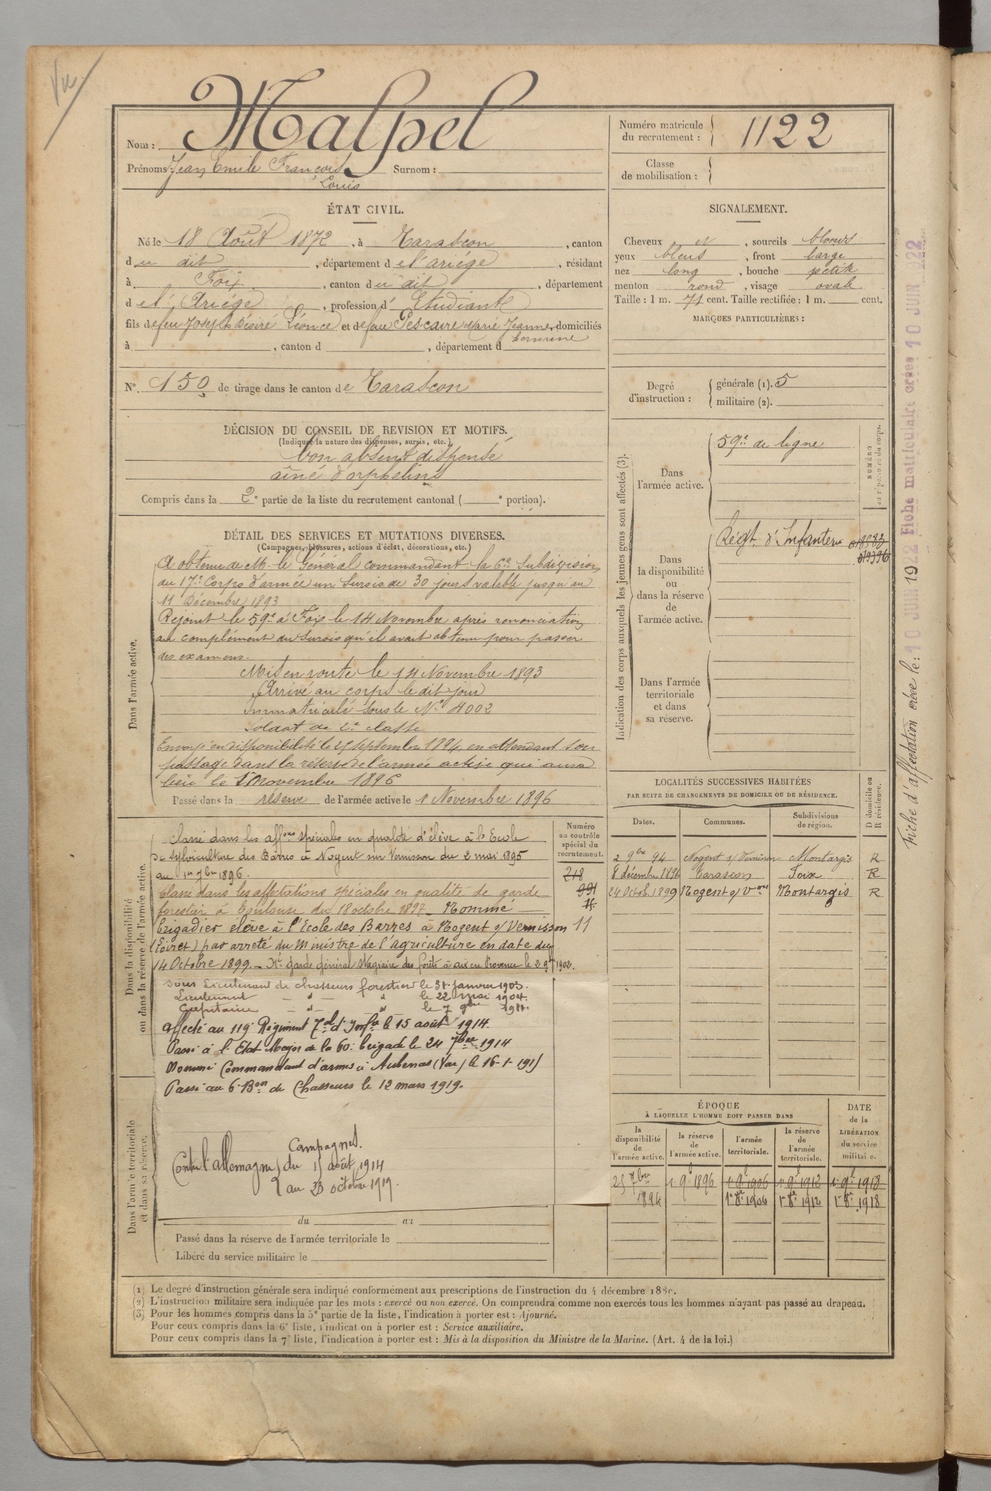 Vu
Nom : Malpel
Prénoms Jean Emile François Surnom :
Louis
Numéro matricule du recrutement : 1122
Classe de mobilisation :
ÉTAT CIVIL.
Né le 18 Août 1872, à Tarascon, canton
du dit, département de l'ariège, résidant
à Foix, canton du dit, département
de l'Ariège, profession d'Etudiant
fils de feu Joseph Désiré Léonce et de feue Pescaire Marie Jeanne, domiciliés
à , canton d , département d
SIGNALEMENT.
Cheveux , sourcils blonds
yeux bleus, front large
nez long, bouche petite
menton rond, visage ovale
Taille : 1 m. 71 cent. Taille rectifiée : 1 m. cent.
MARQUES PARTICULIÈRES :
N° 150 de tirage dans le canton de Tarascon
Degré d'instruction : générale (1). 5
militaire (2).
DÉCISION DU CONSEIL DE REVISION ET MOTIFS.
(Indiquer la nature des dispenses, sursis, etc.)
bon absent dispensé
aîné d'orphelins
Compris dans la 2e partie de la liste du recrutement cantonal ( e portion).
DÉTAIL DES SERVICES ET MUTATIONS DIVERSES.
(Campagnes, blessures, actions d'éclat, décorations, etc.)
Dans l'armée active.
A obtenu de M. le Général commandant la 6e Subdivision
du 17e Corps d'armée un Sursis de 30 jours valable jusqu'au
11 Décembre 1893
Rejoint le 59e à Foix le 14 Novembre après renonciation
au complément du Sursis qu'il avait obtenu pour passer
des examens.
Mis en route le 14 Novembre 1893
Arrivé au corps le dit jour
Immatriculé sous le N° 4002
Soldat de 2e classe
Envoyé en disponibilité le 25 septembre 1894, en attendant son
passage dans la réserve de l'armée active qui aura
lieu le 1 Novembre 1896
Passé dans la réserve de l'armée active le 1 Novembre 1896
Dans la disponibilité ou dans la réserve de l'armée active.
Numéro au contrôle spécial du recrutement.
218
991
11
Classé dans les affons spéciales en qualité d'élève à l'Ecole
de sylviculture des Barres à Nogent sur Vernisson du 2 mai 1895
au 1er 9bre 1896.
Classé dans les affectations spéciales en qualité de garde
forestier à Toulouse du 18 octobre 1897 - Nommé
brigadier élève à l'Ecole des Barres à Nogent s/ Vernisson
(Loiret) par arrêté du Ministre de l'agriculture en date du
14 Octobre 1899.
Sous Lieutenant de chasseurs forestier le 31 janvier 1903.
Lieutenant - " - le 22 mai 1904.
Capitaine - " - le 7 9bre
affecté au 119e Régiment Tal d'Infie le 15 août 1914.
Passé à l'Etat Major de la 60e brigade le 24 7bre 1914
Nommé Commandant d'armes à Aubenas (Var) le 16-1-191
Passé au 6e Bon de Chasseurs le 12 mars 1919.
Dans l'armée territoriale et dans sa réserve.
Campagnes.
Contre l'allemagne du 15 août 1914
au 23 octobre 1919.
du au
Passé dans la réserve de l'armée territoriale le
Libéré du service militaire le
Indication des corps auxquels les jeunes gens sont affectés (3).
Dans l'armée active. 59e de ligne
Dans la disponibilité ou dans la réserve de l'armée active. Régt d'Infanterie
Dans l'armée territoriale et dans sa réserve.
LOCALITÉS SUCCESSIVES HABITÉES
PAR SUITE DE CHANGEMENTS DE DOMICILE OU DE RÉSIDENCE.
Dates. Communes. Subdivisions de région. D domicile ou R résidence.
2 9bre 94 Nogent s/ Vernisson Montargis R
8 décembre 1896 Tarascon Foix R
24 Octob. 1899 Nogent s/ Von Montargis R
ÉPOQUE
À LAQUELLE L'HOMME DOIT PASSER DANS
DATE de la LIBÉRATION du service militaire.
la disponibilité de l'armée active. la réserve de l'armée active. l'armée territoriale. la réserve de l'armée territoriale.
25 7bre 1894 1 9e 1896 1 9e 1906 1 9e 1912 1 9e 1918
1er 8e 1906 1er 8e 1912 1er 8e 1918
Fiche d'affectation créée le : 10 JUIN 1922 Fiche matriculaire créée 10 JUIN 1922
(1) Le degré d'instruction générale sera indiqué conformément aux prescriptions de l'instruction du 4 décembre 1889.
(2) L'instruction militaire sera indiquée par les mots : exercé ou non exercé. On comprendra comme non exercés tous les hommes n'ayant pas passé au drapeau.
(3) Pour les hommes compris dans la 5e partie de la liste, l'indication à porter est : Ajourné.
Pour ceux compris dans la 6e liste, l'indication à porter est : Service auxiliaire.
Pour ceux compris dans la 7e liste, l'indication à porter est : Mis à la disposition du Ministre de la Marine. (Art. 4 de la loi.)